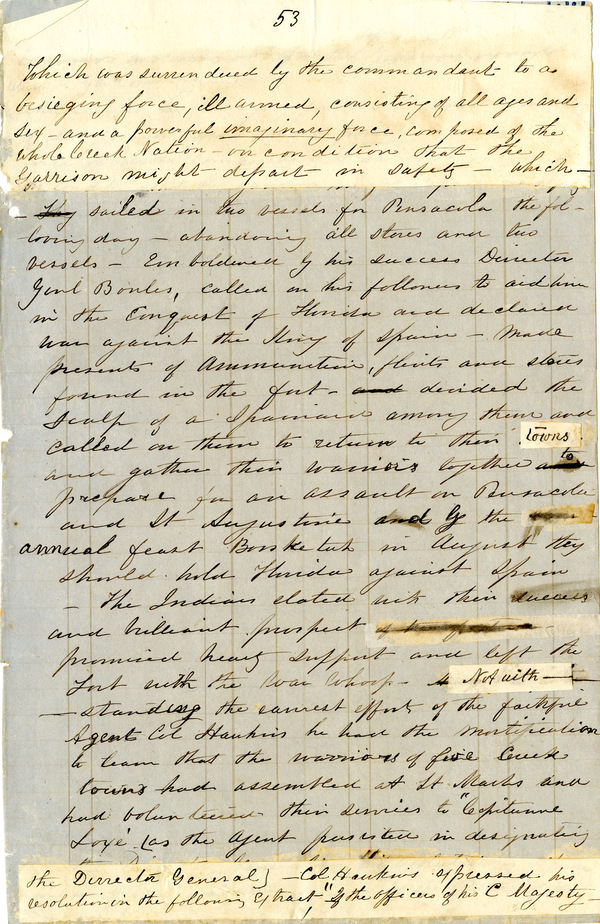 53
Which was surrendered by the commandant to a
besieging force, ill armed, consisting of all ages and
sex - and a powerful imaginary force, composed of the
whole Creek Nation - on condition that the
Garrison might depart in safety - which -
- They sailed in two vessels for Pensacola the fol-
lowing day - abandoning all stores and two
vessels - Emboldened by his success Director
Genl Bowles, called on his followers to aid him
in the Conquest of Florida and declared
war against the King of Spain - Made
presents of Ammunition, flints and stores
found in the fort - and decided the
Scalp of a Spaniard among them and
called on them to return to their towns
and gather their warriors together to
prepare for an assault on Pensacola
and St Augustine and by the
annual feast Boosketuh in August they
should hold Florida against Spain
- The Indians elated with their success
and brilliant prospect
promised hearty support and left the
Fort with the War Whoop - Notwith-
- standing the earnest efforts of the faithful
Agent Col Hawkins he had the mortification
to learn that the warriors of five Creek
towns had assembled at St Marks and
had volunteered their services to "Capitanne
Loxe" (as the Agent persisted in designating
the Dirrector General) - Col. Hawkins expressed his
resolution in the following extract, "If the officers of his C Majesty -